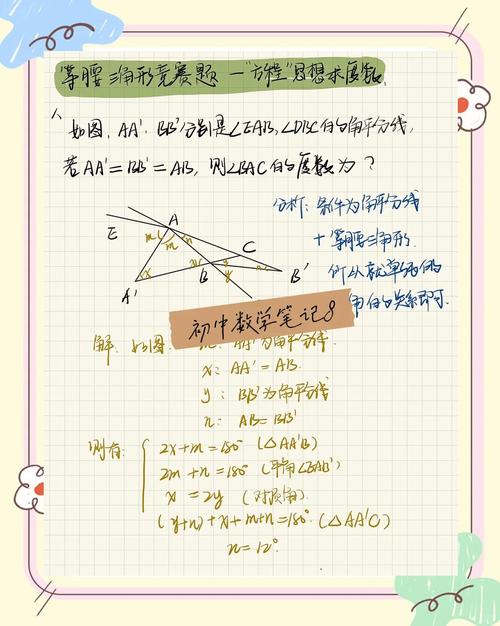 等腰三角形竞赛题一"方程"思想求度数
如图,AA'、BB'分别是∠EAB,∠DBC的角平分线,
若AA'=BB'=AB,则∠BAC的度数为?
分析:条件为角平分线
+等腰三角形
所以就单纯的
角的关系即可.
A
E
m
m
n
C
n
y
B
y
B'
x
A'
初中数学笔记8
解:如图
m:AA'为角平分线
x:AA'=AB.
y:BB'为角平分线
n:AB=BB'
则有:
2x+m=180°(△AA'B)
2m+n=180°(平角∠EAB')
x=2y(对顶角)
(y+n)+x+m+n=180°.(△AA'C)
n=12°.